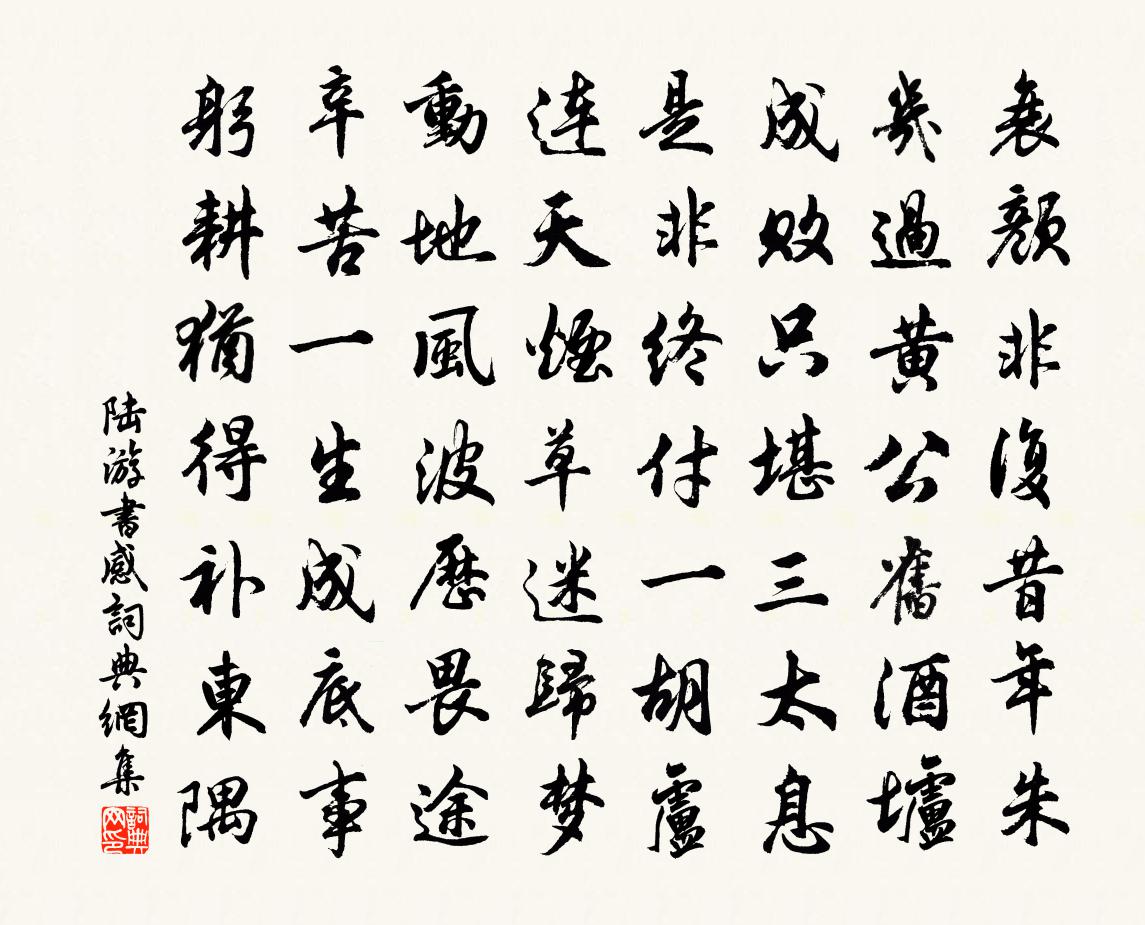 衰顏非復昔年朱
幾過黃公舊酒壚
成敗只堪三太息
是非終付一胡盧
連天煙草迷歸梦
動地風波歷畏途
辛苦一生成底事
躬耕猶得补東隅
陆游書感詞典網集
詞典网印